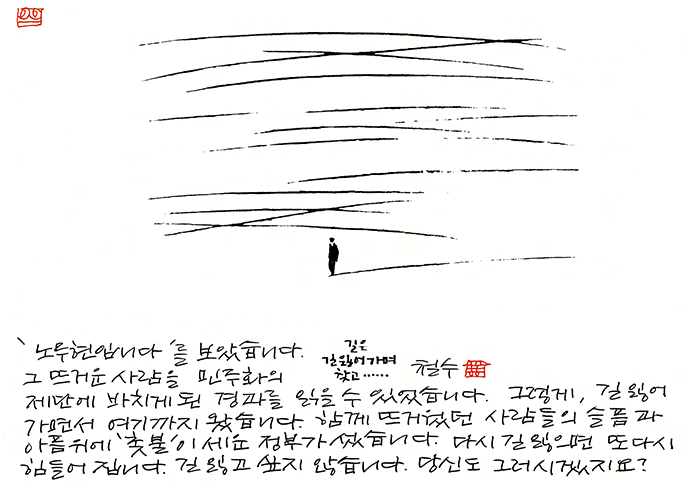 '노무현입니다'를 보았습니다.
그 뜨거운 사람을 민주화의
제단에 바치게 된 경과를 읽을 수 있었습니다. 그렇게, 길 잃어
가면서 여기까지 왔습니다. 함께 뜨거웠던 사람들의 슬픔과
아픔위에 '촛불'이 세운 정부가 섰습니다. 다시 길 잃으면 또 다시
힘들어 집니다. 길 잃고 싶지 않습니다. 당신도 그러시겠지요?
길은
길 잃어가며
찾고......
철수